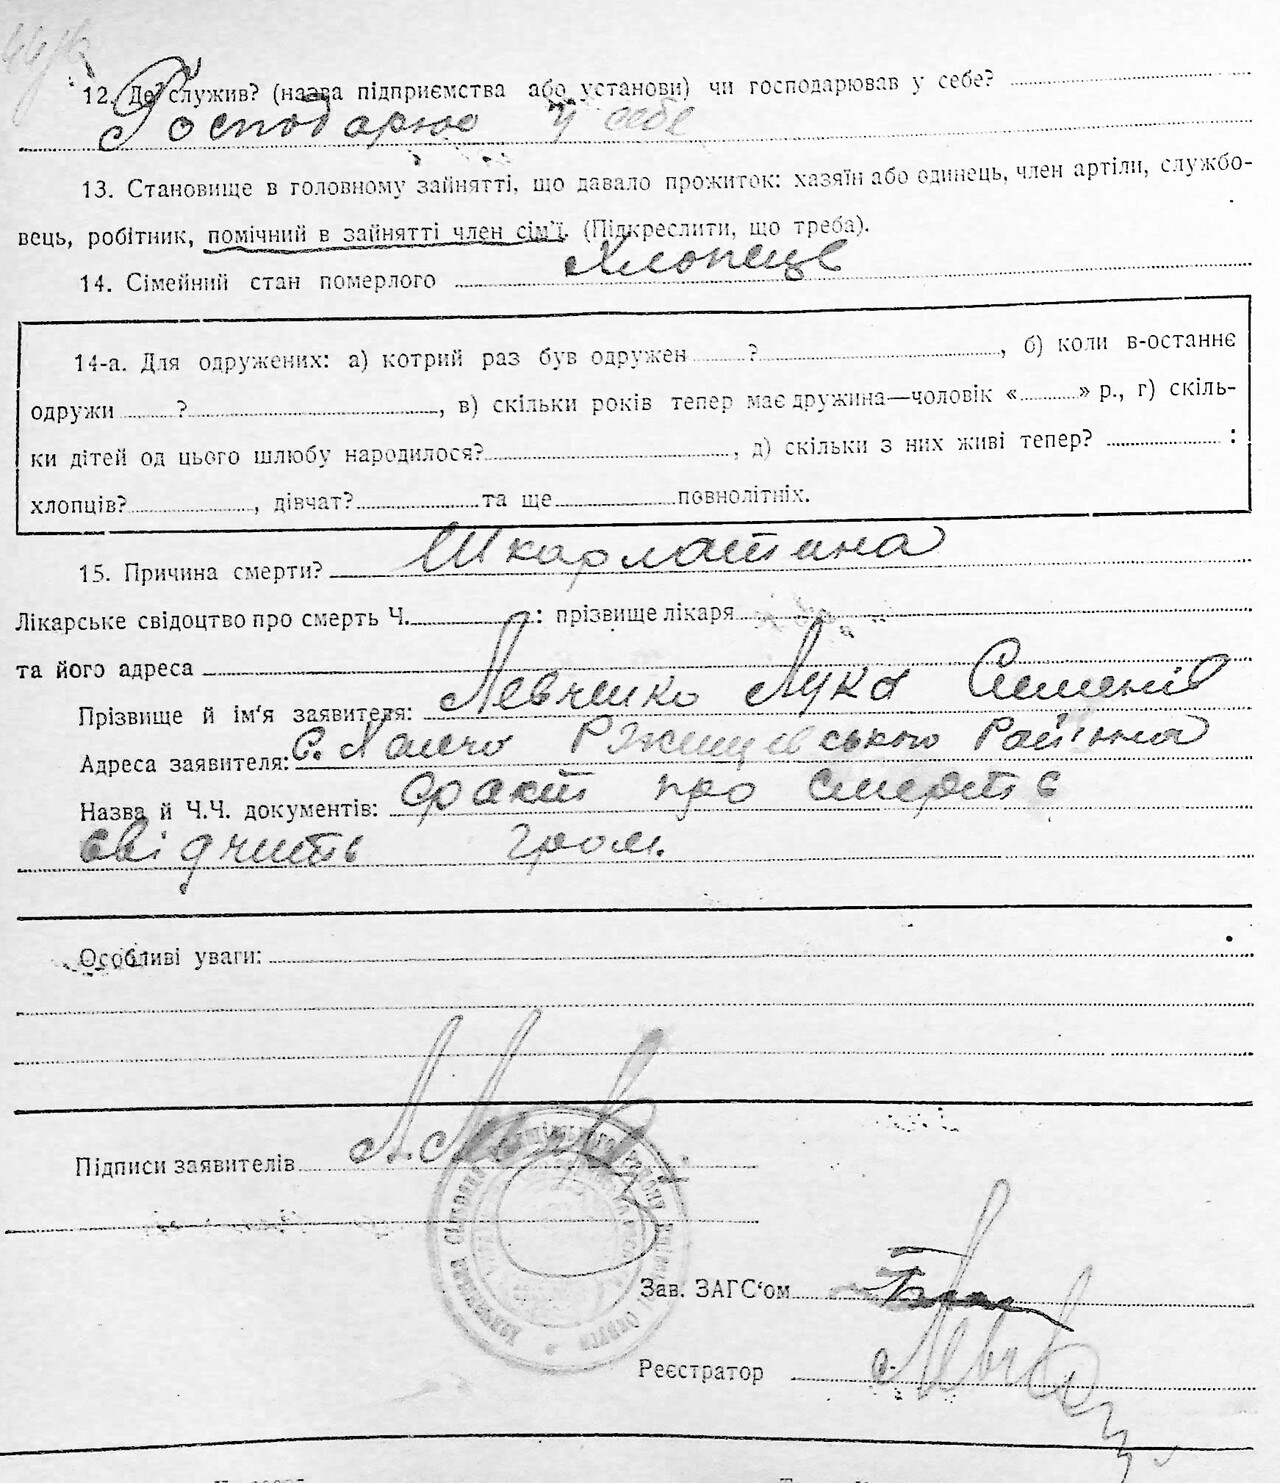 12. Де служив? (назва підприємства або установи) чи господарював у себе?
Господарюю у себе
13. Становище в головному зайнятті, що давало прожиток: хазяїн або одинець, член артілі, службо-
вець, робітник, помічний в зайнятті член сім'ї. (Підкреслити, що треба).
14. Сімейний стан померлого Хлопець
14-а. Для одружених: а) котрий раз був одружен ? , б) коли в-останнє
одружи ? , в) скільки років тепер має дружина—чоловік « » р., г) скіль-
ки дітей од цього шлюбу народилося? , д) скільки з них живі тепер? :
хлопців? , дівчат? та ще повнолітніх.
15. Причина смерти? Шкарлатина
Лікарське свідоцтво про смерть Ч. : прізвище лікаря
та його адреса
Прізвище й ім'я заявителя: Левченко Лука Семенів
Адреса заявителя: с. Халечо Ржищевського Району
Назва й Ч.Ч. документів: Факт про смерть
свідчить гром.
Особливі уваги:
Підписи заявителів
Зав. ЗАГС'ом
Реєстратор